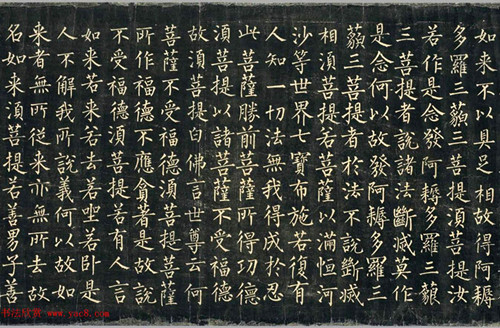 如来不以具足相故得阿耨
多羅三藐三菩提湏菩提汝
若作是念發阿耨多羅三藐
三菩提者說諸法斷滅莫作
是念何以故發阿耨多羅三
藐三菩提者於法不說斷滅
相湏菩提若菩薩以滿恒河
沙等世界七寶布施若復有
人知一切法無我得成於忍
此菩薩勝前菩薩所得功德
湏菩提以諸菩薩不受福德
故湏菩提白佛言世尊云何
菩薩不受福德湏菩提菩薩
所作福德不應貪著是故說
不受福德湏菩提若有人言
如来若来若去若坐若卧是
人不解我所說義何以故如
来者無所從来亦無所去故
名如来湏菩提若善男子善
书法欣赏 www.yac8.com